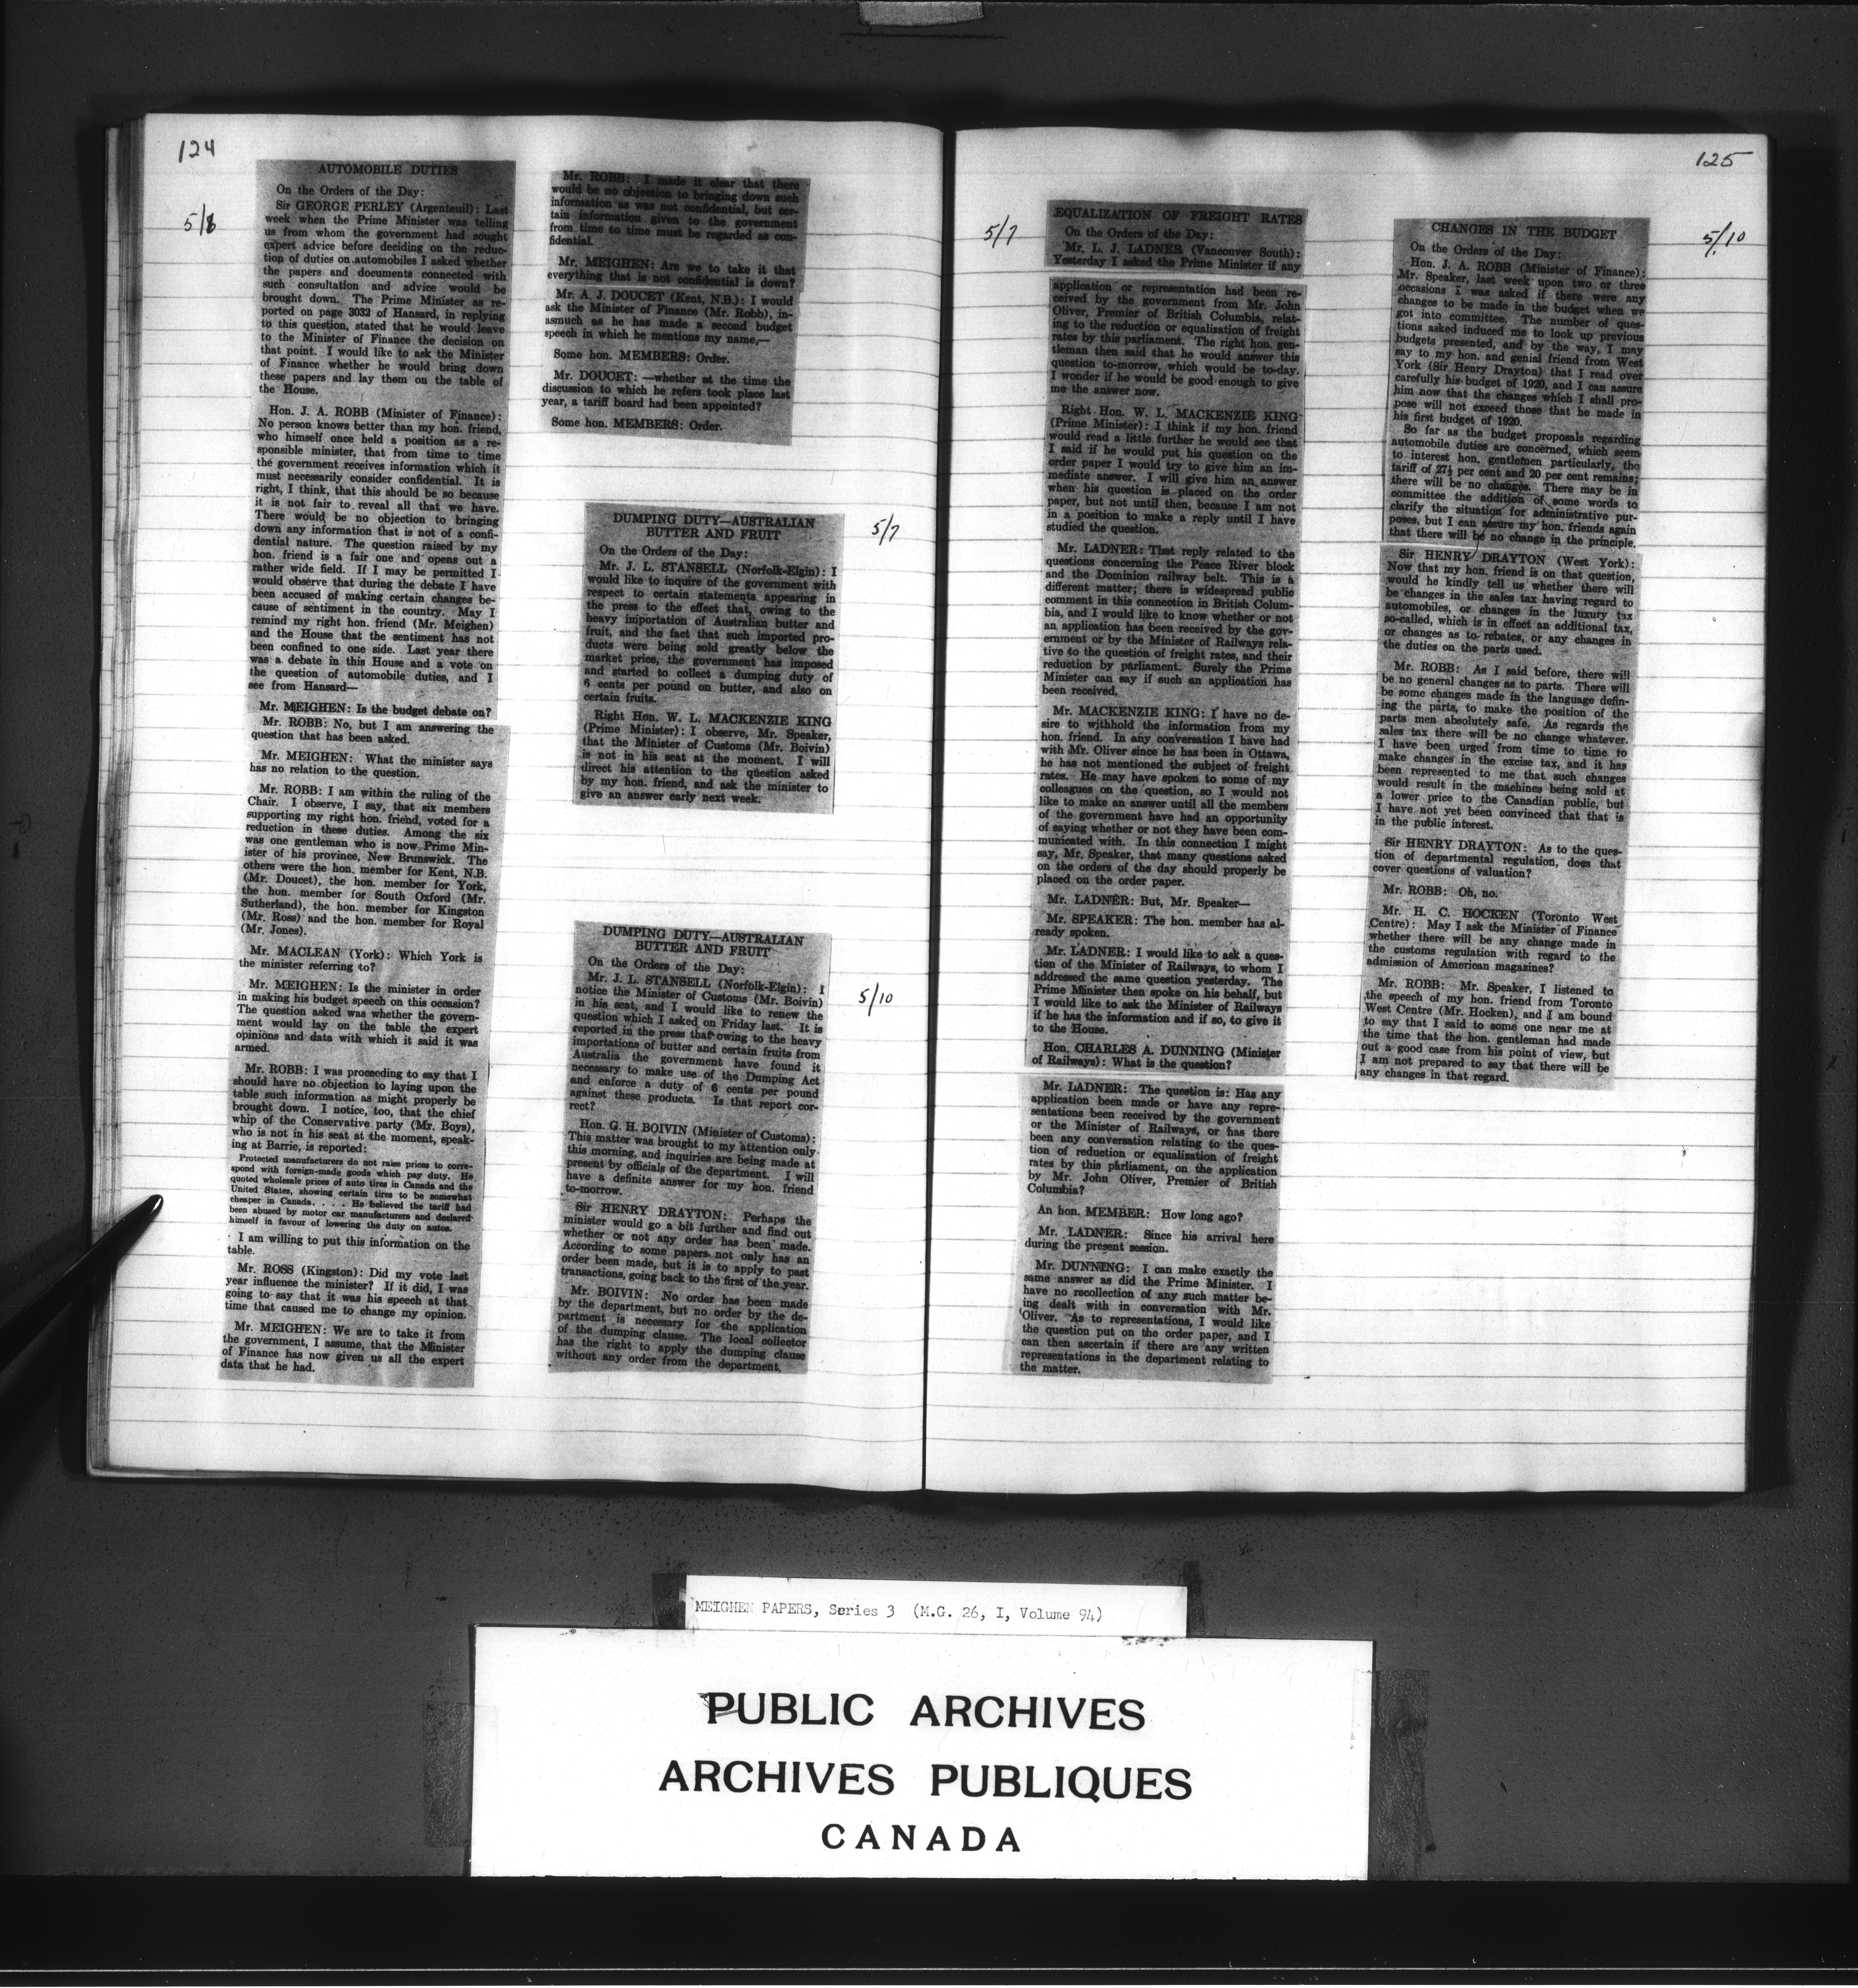 124
5/8
AUTOMOBILE DUTIES
On the Orders of the Day:
Sir GEORGE PERLEY (Argenteuil): Last
week when the Prime Minister was telling
us from whom the government had sought
expert advice before deciding on the reduc-
tion of duties on automobiles I asked whether
the papers and documents connected with
such consultation and advice would be
brought down. The Prime Minister as re-
ported on page 3032 of Hansard, in replying
to this question, stated that he would leave
to the Minister of Finance the decision on
that point. I would like to ask the Minister
of Finance whether he would bring down
these papers and lay them on the table of
the House.
Hon. J. A. ROBB (Minister of Finance):
No person knows better than my hon. friend,
who himself once held a position as a re-
sponsible minister, that from time to time
the government receives information which it
must necessarily consider confidential. It is
right, I think, that this should be so because
it is not fair to reveal all that we have.
There would be no objection to bringing
down any information that is not of a confi-
dential nature. The question raised by my
hon. friend is a fair one and opens out a
rather wide field. If I may be permitted I
would observe that during the debate I have
been accused of making certain changes be-
cause of sentiment in the country. May I
remind my right hon. friend (Mr. Meighen)
and the House that the sentiment has not
been confined to one side. Last year there
was a debate in this House and a vote on
the question of automobile duties, and I
see from Hansard—
Mr. MEIGHEN: Is the budget debate on?
Mr. ROBB: No, but I am answering the
question that has been asked.
Mr. MEIGHEN: What the minister says
has no relation to the question.
Mr. ROBB: I am within the ruling of the
Chair. I observe, I say, that six members
supporting my right hon. friend, voted for a
reduction in these duties. Among the six
was one gentleman who is now Prime Min-
ister of his province, New Brunswick. The
others were the hon. member for Kent, N.B.
(Mr. Doucet), the hon. member for York,
the hon. member for South Oxford (Mr.
Sutherland), the hon. member for Kingston
(Mr. Ross) and the hon. member for Royal
(Mr. Jones).
Mr. MACLEAN (York): Which York is
the minister referring to?
Mr. MEIGHEN: Is the minister in order
in making his budget speech on this occasion?
The question asked was whether the govern-
ment would lay on the table the expert
opinions and data with which it said it was
armed.
Mr. ROBB: I was proceeding to say that I
should have no objection to laying upon the
table such information as might properly be
brought down. I notice, too, that the chief
whip of the Conservative party (Mr. Boys),
who is not in his seat at the moment, speak-
ing at Barrie, is reported:
Protected manufacturers do not raise prices to corre-
spond with foreign-made goods which pay duty. He
quoted wholesale prices of auto tires in Canada and the
United States, showing certain tires to be somewhat
cheaper in Canada. . . . He believed the tariff had
been abused by motor car manufacturers and declared
himself in favour of lowering the duty on autos.
I am willing to put this information on the
table.
Mr. ROSS (Kingston): Did my vote last
year influence the minister? If it did, I was
going to say that it was his speech at that
time that caused me to change my opinion.
Mr. MEIGHEN: We are to take it from
the government, I assume, that the Minister
of Finance has now given us all the expert
data that he had.
Mr. ROBB: I made it clear that there
would be no objection to bringing down such
information as was not confidential, but cer-
tain information given to the government
from time to time must be regarded as con-
fidential.
Mr. MEIGHEN: Are we to take it that
everything that is not confidential is down?
Mr. A. J. DOUCET (Kent, N.B.): I would
ask the Minister of Finance (Mr. Robb), in-
asmuch as he has made a second budget
speech in which he mentions my name,—
Some hon. MEMBERS: Order.
Mr. DOUCET: —whether at the time the
discussion to which he refers took place last
year, a tariff board had been appointed?
Some hon. MEMBERS: Order.
5/7
DUMPING DUTY—AUSTRALIAN
BUTTER AND FRUIT
On the Orders of the Day:
Mr. J. L. STANSELL (Norfolk-Elgin): I
would like to inquire of the government with
respect to certain statements appearing in
the press to the effect that, owing to the
heavy importation of Australian butter and
fruit, and the fact that such imported pro-
ducts were being sold greatly below the
market price, the government has imposed
and started to collect a dumping duty of
6 cents per pound on butter, and also on
certain fruits.
Right Hon. W. L. MACKENZIE KING
(Prime Minister): I observe, Mr. Speaker,
that the Minister of Customs (Mr. Boivin)
is not in his seat at the moment. I will
direct his attention to the question asked
by my hon. friend, and ask the minister to
give an answer early next week.
DUMPING DUTY—AUSTRALIAN
BUTTER AND FRUIT
5/10
On the Orders of the Day:
Mr. J. L. STANSELL (Norfolk-Elgin): I
notice the Minister of Customs (Mr. Boivin)
in his seat, and I would like to renew the
question which I asked on Friday last. It is
reported in the press that owing to the heavy
importations of butter and certain fruits from
Australia the government have found it
necessary to make use of the Dumping Act
and enforce a duty of 6 cents per pound
against these products. Is that report cor-
rect?
Hon. G. H. BOIVIN (Minister of Customs):
This matter was brought to my attention only
this morning, and inquiries are being made at
present by officials of the department. I will
have a definite answer for my hon. friend
to-morrow.
Sir HENRY DRAYTON: Perhaps the
minister would go a bit further and find out
whether or not any order has been made.
According to some papers not only has an
order been made, but it is to apply to past
transactions, going back to the first of the year.
Mr. BOIVIN: No order has been made
by the department, but no order by the de-
partment is necessary for the application
of the dumping clause. The local collector
has the right to apply the dumping clause
without any order from the department.
125
5/7
EQUALIZATION OF FREIGHT RATES
On the Orders of the Day:
Mr. L. J. LADNER (Vancouver South):
Yesterday I asked the Prime Minister if any
application or representation had been re-
ceived by the government from Mr. John
Oliver, Premier of British Columbia, relat-
ing to the reduction or equalization of freight
rates by this parliament. The right hon. gen-
tleman then said that he would answer this
question to-morrow, which would be to-day.
I wonder if he would be good enough to give
me the answer now.
Right Hon. W. L. MACKENZIE KING
(Prime Minister): I think if my hon. friend
would read a little further he would see that
I said if he would put his question on the
order paper I would try to give him an im-
mediate answer. I will give him an answer
when his question is placed on the order
paper, but not until then, because I am not
in a position to make a reply until I have
studied the question.
Mr. LADNER: That reply related to the
questions concerning the Peace River block
and the Dominion railway belt. This is a
different matter; there is widespread public
comment in this connection in British Colum-
bia, and I would like to know whether or not
an application has been received by the gov-
ernment or by the Minister of Railways rela-
tive to the question of freight rates, and their
reduction by parliament. Surely the Prime
Minister can say if such an application has
been received.
Mr. MACKENZIE KING: I have no de-
sire to withhold the information from my
hon. friend. In any conversation I have had
with Mr. Oliver since he has been in Ottawa,
he has not mentioned the subject of freight
rates. He may have spoken to some of my
colleagues on the question, so I would not
like to make an answer until all the members
of the government have had an opportunity
of saying whether or not they have been com-
municated with. In this connection I might
say, Mr. Speaker, that many questions asked
on the orders of the day should properly be
placed on the order paper.
Mr. LADNER: But, Mr. Speaker—
Mr. SPEAKER: The hon. member has al-
ready spoken.
Mr. LADNER: I would like to ask a ques-
tion of the Minister of Railways, to whom I
addressed the same question yesterday. The
Prime Minister then spoke on his behalf, but
I would like to ask the Minister of Railways
if he has the information and if so, to give it
to the House.
Hon. CHARLES A. DUNNING (Minister
of Railways): What is the question?
Mr. LADNER: The question is: Has any
application been made or have any repre-
sentations been received by the government
or the Minister of Railways, or has there
been any conversation relating to the ques-
tion of reduction or equalization of freight
rates by this parliament, on the application
by Mr. John Oliver, Premier of British
Columbia?
An hon. MEMBER: How long ago?
Mr. LADNER: Since his arrival here
during the present session.
Mr. DUNNING: I can make exactly the
same answer as did the Prime Minister. I
have no recollection of any such matter be-
ing dealt with in conversation with Mr.
Oliver. As to representations, I would like
the question put on the order paper, and I
can then ascertain if there are any written
representations in the department relating to
the matter.
5/10
CHANGES IN THE BUDGET
On the Orders of the Day:
Hon. J. A. ROBB (Minister of Finance):
Mr. Speaker, last week upon two or three
occasions I was asked if there were any
changes to be made in the budget when we
got into committee. The number of ques-
tions asked induced me to look up previous
budgets presented, and by the way, I may
say to my hon. and genial friend from West
York (Sir Henry Drayton) that I read over
carefully his budget of 1920, and I can assure
him now that the changes which I shall pro-
pose will not exceed those that he made in
his first budget of 1920.
So far as the budget proposals regarding
automobile duties are concerned, which seem
to interest hon. gentlemen particularly, the
tariff of 27½ per cent and 20 per cent remains;
there will be no changes. There may be in
committee the addition of some words to
clarify the situation for administrative pur-
poses, but I can assure my hon. friends again
that there will be no change in the principle.
Sir HENRY DRAYTON (West York):
Now that my hon. friend is on that question,
would he kindly tell us whether there will
be changes in the sales tax having regard to
automobiles, or changes in the luxury tax
so-called, which is in effect an additional tax,
or changes as to rebates, or any changes in
the duties on the parts used.
Mr. ROBB: As I said before, there will
be no general changes as to parts. There will
be some changes made in the language defin-
ing the parts, to make the position of the
parts men absolutely safe. As regards the
sales tax there will be no change whatever.
I have been urged from time to time to
make changes in the excise tax, and it has
been represented to me that such changes
would result in the machines being sold at
a lower price to the Canadian public, but
I have not yet been convinced that that is
in the public interest.
Sir HENRY DRAYTON: As to the ques-
tion of departmental regulation, does that
cover questions of valuation?
Mr. ROBB: Oh, no.
Mr. H. C. HOCKEN (Toronto West
Centre): May I ask the Minister of Finance
whether there will be any change made in
the customs regulation with regard to the
admission of American magazines?
Mr. ROBB: Mr. Speaker, I listened to
the speech of my hon. friend from Toronto
West Centre (Mr. Hocken), and I am bound
to say that I said to some one near me at
the time that the hon. gentleman had made
out a good case from his point of view, but
I am not prepared to say that there will be
any changes in that regard.
MEIGHEN PAPERS, Series 3 (M.G. 26, I, Volume 94)
PUBLIC ARCHIVES
ARCHIVES PUBLIQUES
CANADA